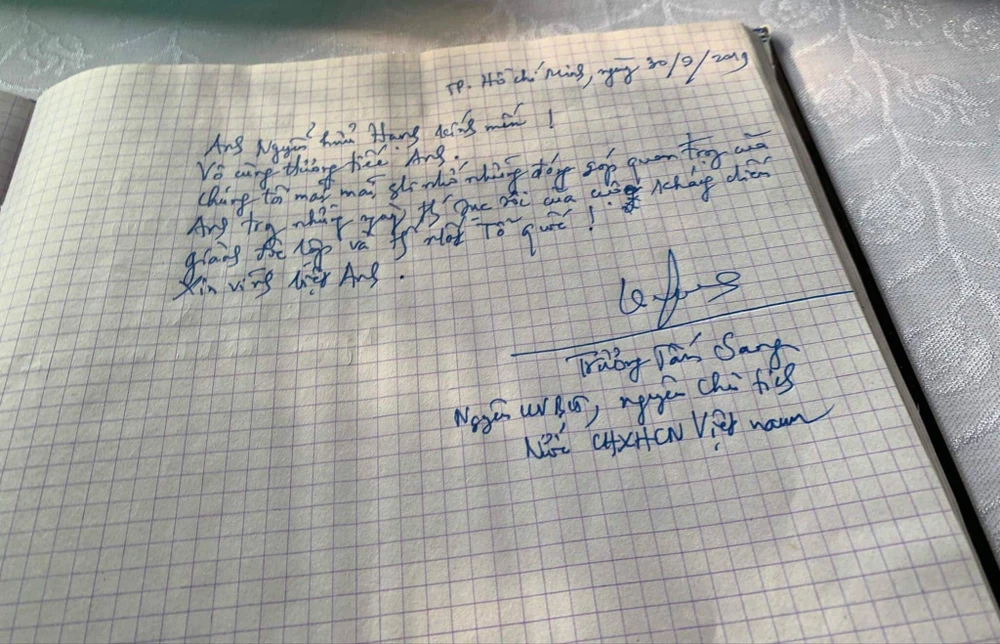 TP. Hồ Chí Minh, ngày 30/9/2019
Anh Nguyễn Hữu Hạnh kính mến!
Vô cùng thương tiếc Anh.
Chúng tôi mãi mãi ghi nhớ những đóng góp quan trọng của
Anh trong những ngày sôi của cuộc kháng chiến
giành độc lập và nhất Tổ quốc!
Xin vĩnh biệt Anh.
Trương Tấn Sang
Nguyên UVBCT, nguyên Chủ tịch
Nước CHXHCN Việt Nam